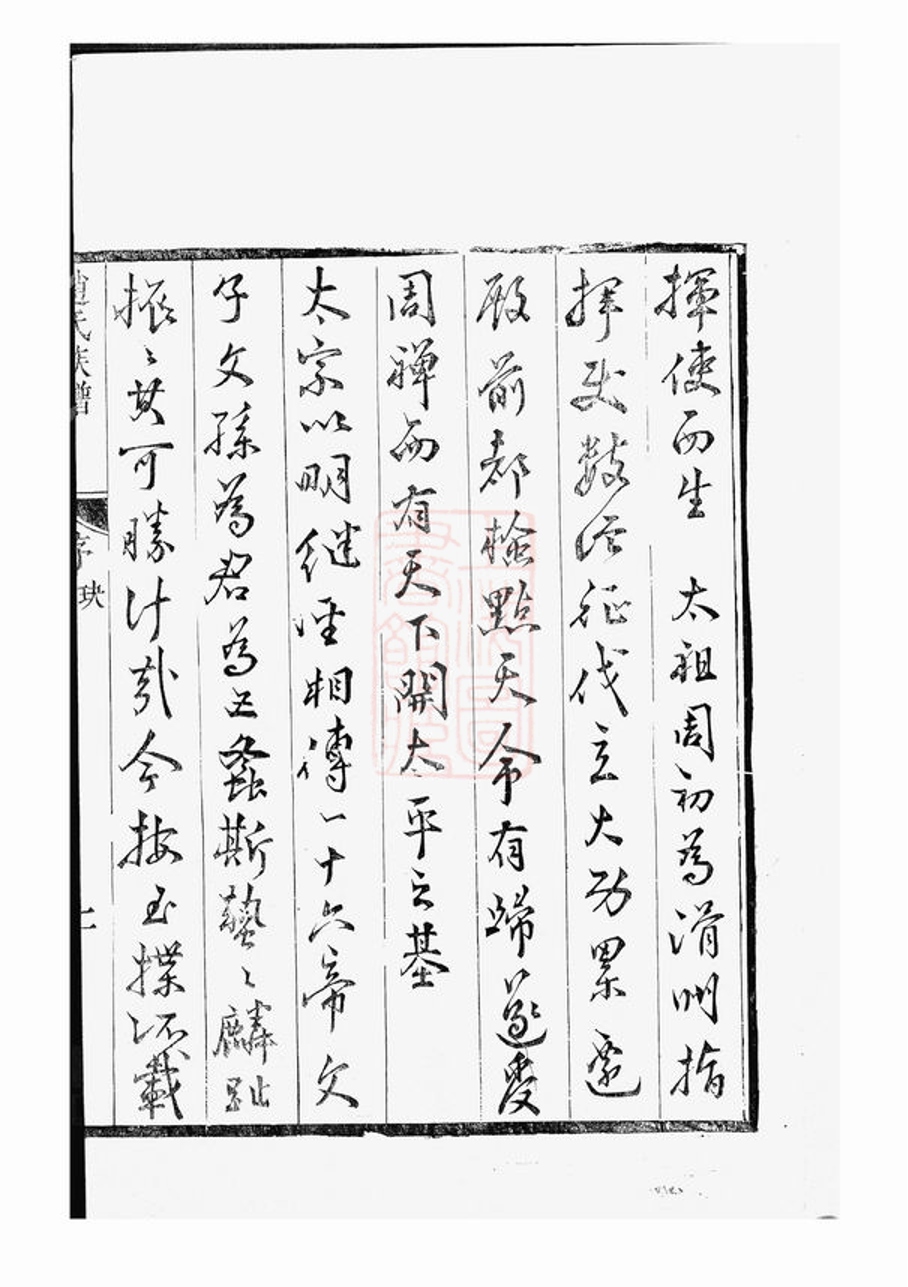 揮使而生　太祖周初為滑州指
揮使數從征伐立大功累遷
殿前都檢點天命有歸遂受
周禪而有天下開太平之基
太宗以明繼聖相傳一十六帝文
子文孫為君為王螽斯蟄〻麟趾
振〻其可勝計哉今按玉牒所載
趙氏族譜
序